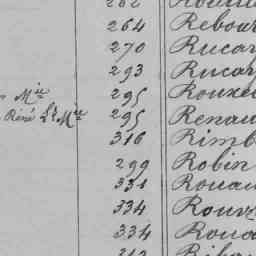 262
264 Rebour
270 Rucar
293 Rucar
Mie 295 Rouxe
René Lt Mie 295 Renau
316 Rimb
299 Robin
331 Rouau
334 Rouv
334 Roua
313 Riba